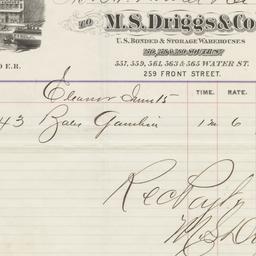 TO
M. S. Driggs & Co
U. S. BONDED & STORAGE WAREHOUSES
557, 559, 561, 563 & 565 WATER ST.
259 FRONT STREET.
D E.R.
TIME. RATE.
Eleanor June 15
43 Bales Gambier 1 m 6
Rec Payt
M. S. D